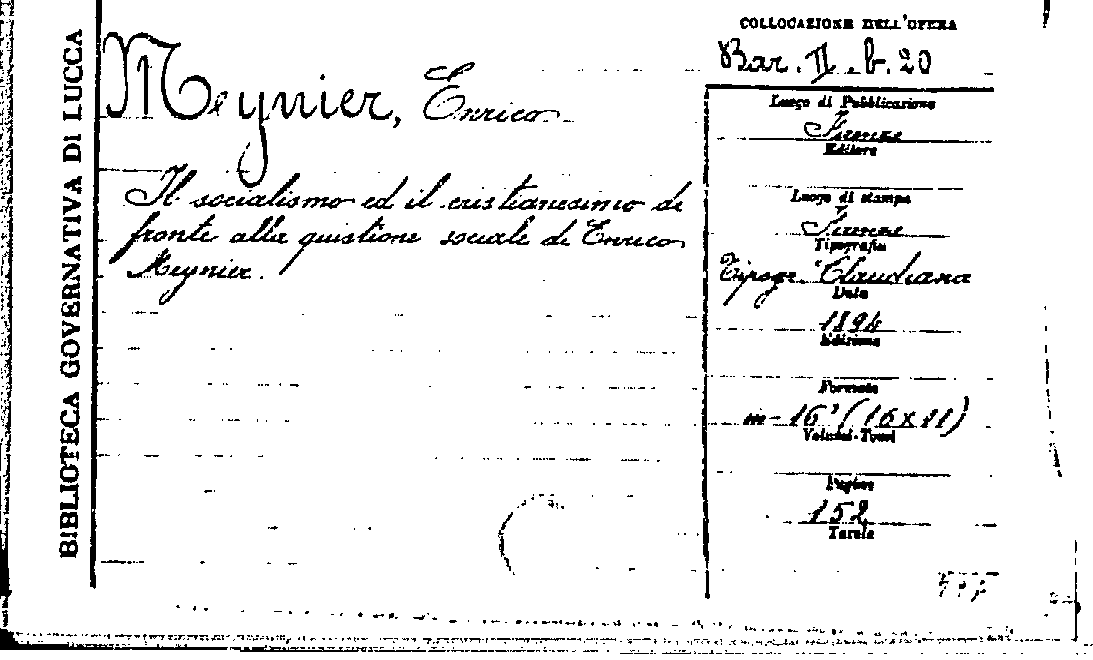 BIBLIOTECA GOVERNATIVA DI LUCCA
Meynier, Enrico
Il socialismo ed il cristianesimo di
fronte alla quistione sociale di Enrico
Meynier.
COLLOCAZIONE DELL'OPERA
Bar. II. b. 20
Luogo di Pubblicazione
Firenze
Editore
Luogo di stampa
Firenze
Tipografia
Tipogr. Claudiana
Data
1894
Edizione
Formato
in-16° (16x11)
Volumi-Tomi
Pagine
152
Tavole